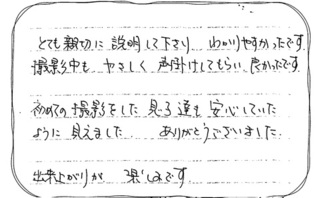 とても親切に説明して下さり わかりやすかったです
撮影中も やさしく 声掛けしてもらい 良かったです
初めての撮影をした 児子達も 安心していた
ように 見えました ありがとうございました
出来上がりが 楽しみです